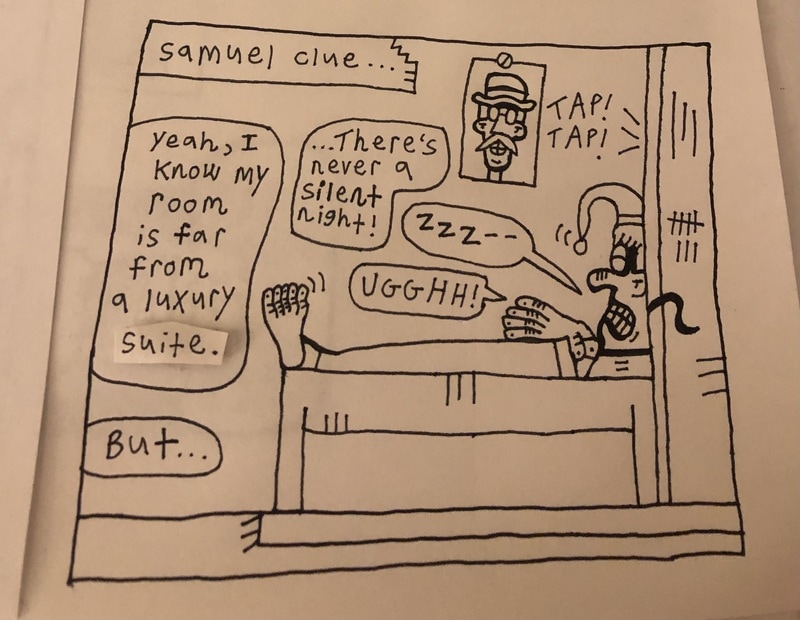 samuel clue...
yeah, I
know my
room
is far
from
a luxury
suite.
But...
...There's
never a
silent
night!
TAP!
TAP!
ZZZ--
UGGHH!